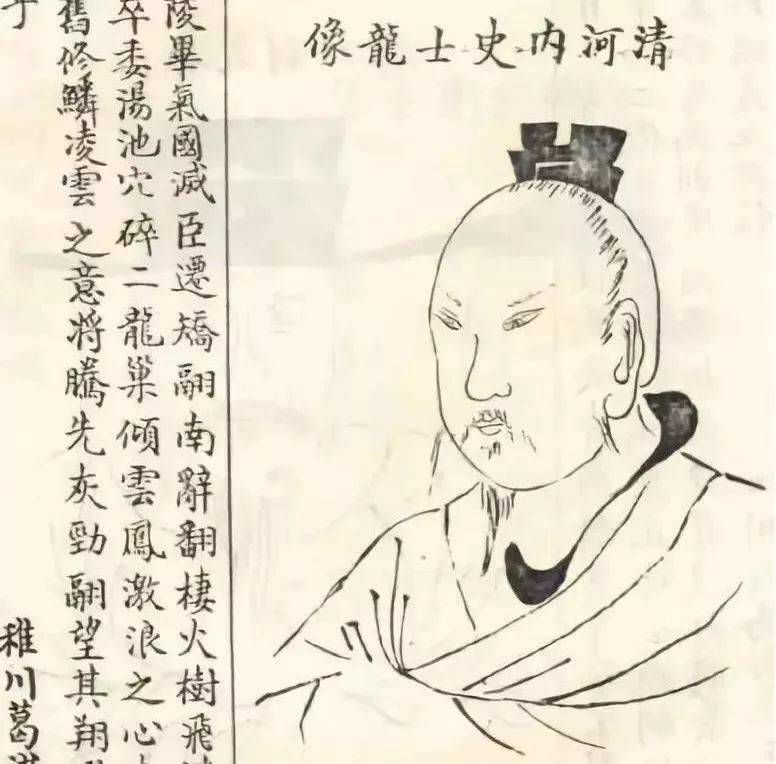 清河内史士龍像
陵畢氣國滅臣遷矯翮南辭翻棲火樹飛
卒委湯池穴碎二龍巢傾雲鳳激浪之心
舊修鱗凌雲之意將騰先灰勁翮望其翔
稚川葛洪